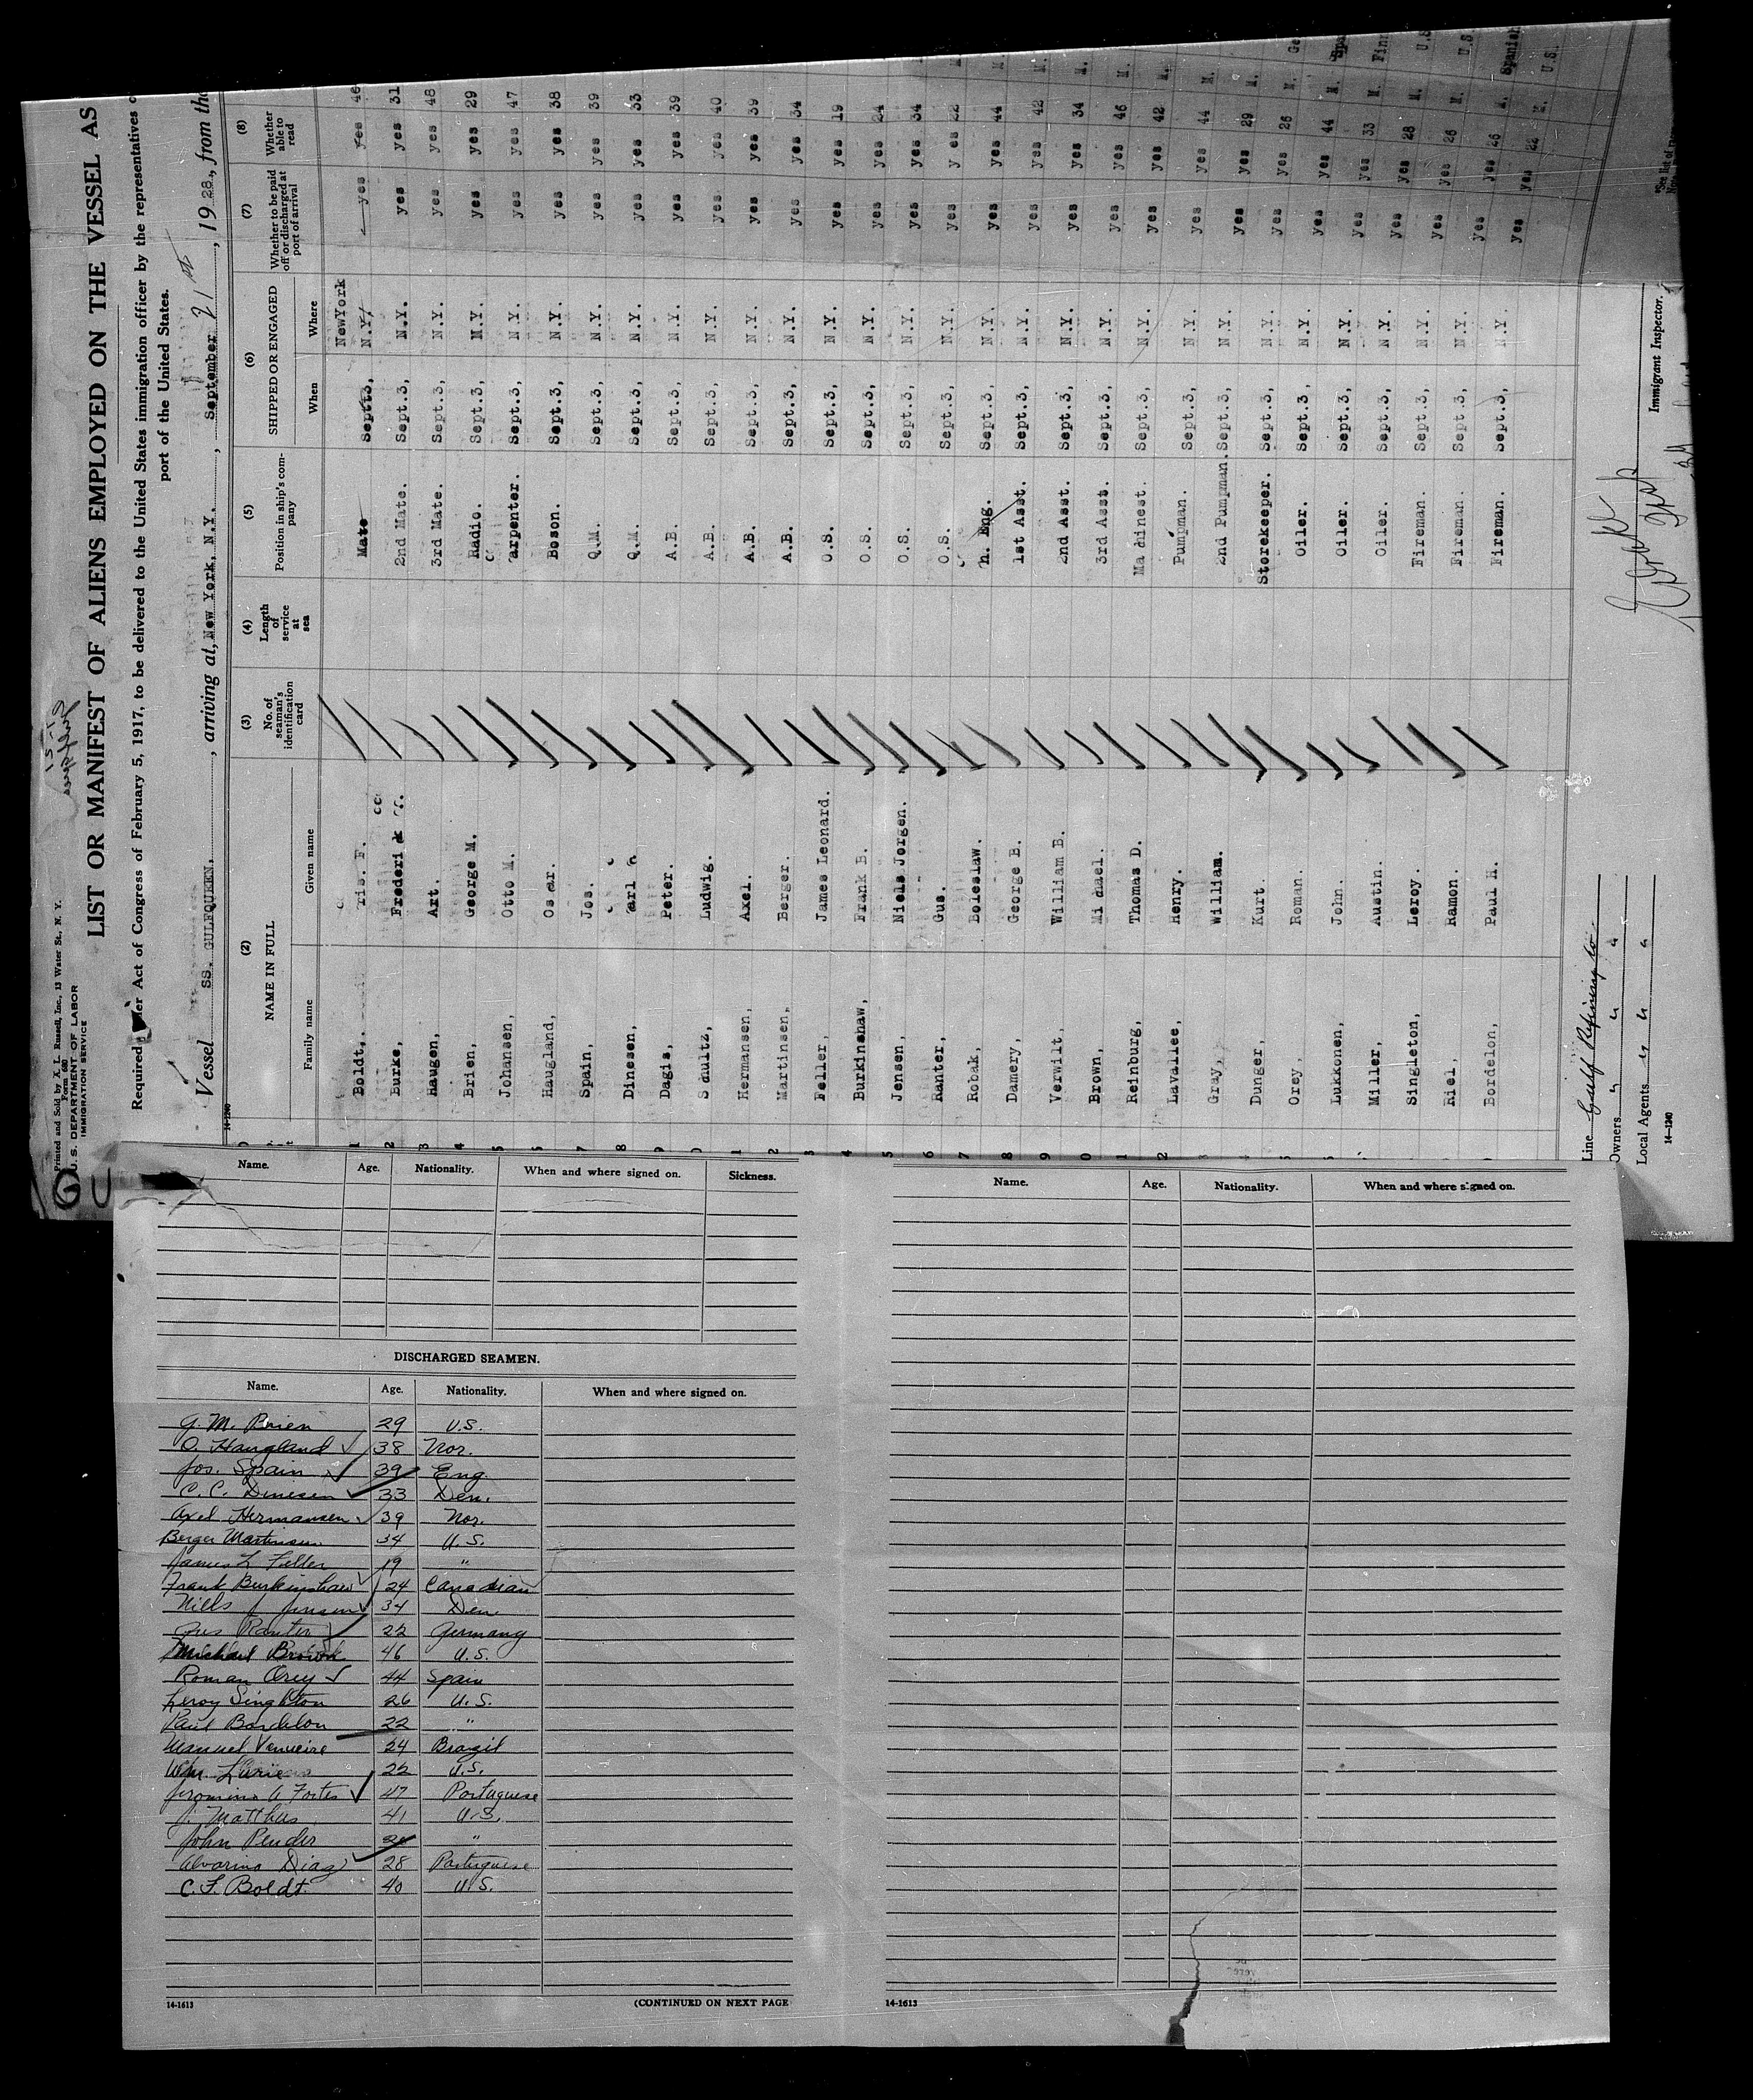 Printed and Sold by A. L. Russell, Inc., 13 Water St., N. Y.
Form 680
U. S. DEPARTMENT OF LABOR
IMMIGRATION SERVICE
LIST OR MANIFEST OF ALIENS EMPLOYED ON THE VESSEL AS
Act of Congress of February 5, 1917, to be delivered to the United States immigration officer by the representatives
port of the United States.
Vessel SS. GULFQUEEN, arriving at, New York, N.Y., September 21st, 1928, from the
14-1240
(2) NAME IN FULL
Family name Given name
(3) No. of seaman's identification card
(4) Length of service at sea
(5) Position in ship's company
(6) SHIPPED OR ENGAGED
When Where
(7) Whether to be paid off or discharged at port of arrival
(8) Whether able to read
NewYork
1 Boldt, Cris. F. Mate Sept.3, N.Y. yes yes 46
2 Burke, Frederick 2nd Mate. Sept.3, N.Y. yes yes 31
3 Haugen, Art. 3rd Mate. Sept.3, N.Y. yes yes 48
4 Brien, George M. Radio. Sept.3, N.Y. yes yes 29
5 Johansen, Otto M. Carpenter. Sept.3, N.Y. yes yes 47
Haugland, Oscar. Boson. Sept.3, N.Y. yes yes 38
7 Spain, Jos. Q.M. Sept.3, N.Y. yes yes 39
8 Dinesen, Carl C Q.M. Sept.3, N.Y. yes yes 33
9 Dagis, Peter. A.B. Sept.3, N.Y. yes yes 39
0 Schultz, Ludwig. A.B. Sept.3, N.Y. yes yes 40
1 Hermansen, Axel. A.B. Sept.3, N.Y. yes yes 39
2 Martinsen, Berger. A.B. Sept.3, N.Y. yes yes 34
3 Feller, James Leonard. O.S. Sept.3, N.Y. yes yes 19
4 Burkinshaw, Frank B. O.S. Sept.3, N.Y. yes yes 24
5 Jensen, Niels Jorgen. O.S. Sept.3, N.Y. yes yes 34
6 Ranter, Gus. O.S. Sept.3, N.Y. yes yes 22 M.
7 Robak, Boleslaw. Ch. Eng. Sept.3, N.Y. yes yes 44 M.
8 Damery, George B. 1st Asst. Sept.3, N.Y. yes yes 42 M.
9 Verwilt, William B. 2nd Asst. Sept.3, N.Y. yes yes 34 M.
0 Brown, Michael. 3rd Asst. Sept.3, N.Y. yes yes 46 M.
1 Reinburg, Thomas D. Machinest. Sept.3, N.Y. yes yes 42 M.
2 Lavallee, Henry. Pumpman. Sept.3, N.Y. yes yes 44 M.
Gray, William. 2nd Pumpman. Sept.3, N.Y. yes yes 29 M.
Dunger, Kurt. Storekeeper. Sept.3, N.Y. yes yes 26 M. Ge
Orey, Roman. Oiler. Sept.3, N.Y. yes yes 44 M.
Lukkonen, John. Oiler. Sept.3, N.Y. yes yes 33 M. Finn
Miller, Austin. Oiler. Sept.3, N.Y. yes yes 28 M. U.S
Singleton, Leroy. Fireman. Sept.3, N.Y. yes yes 26 M. U.S
Riel, Ramon. Fireman. Sept.3, N.Y. yes yes 26 M. Spanish
Bordelon, Paul H. Fireman. Sept.3, N.Y. yes yes 22 M. U.S.
Line Gulf Refining Co
Owners " " "
Local Agents " " "
14-1240
Immigrant Inspector.
Name. Age. Nationality. When and where signed on. Sickness.
DISCHARGED SEAMEN.
Name. Age. Nationality. When and where signed on.
G. M. Brien 29 U.S.
O. Haugland 38 Nor.
Jos. Spain 39 Eng.
C. C. Dinesen 33 Den.
Axel Hermansen 39 Nor.
Berger Martinsen 34 U.S.
James L Feller 19 "
Frank Burkinshaw 24 Canadian
Nills J Jensen 34 Den.
Gus Ranter 22 Germany
Michael Brown 46 U.S.
Roman Orey 44 Spain
Leroy Singleton 26 U.S.
Paul Bordelon 22 "
Manuel 24 Brazil
Wm. 22 U.S.
A Fortes 47 Portuguese
J. Matthews 41 U.S.
John Pender "
Alvarino Diaz 28 Portuguese
C. F. Boldt. 40 U.S.
14-1613
(CONTINUED ON NEXT PAGE
Name. Age. Nationality. When and where signed on.
14-1613